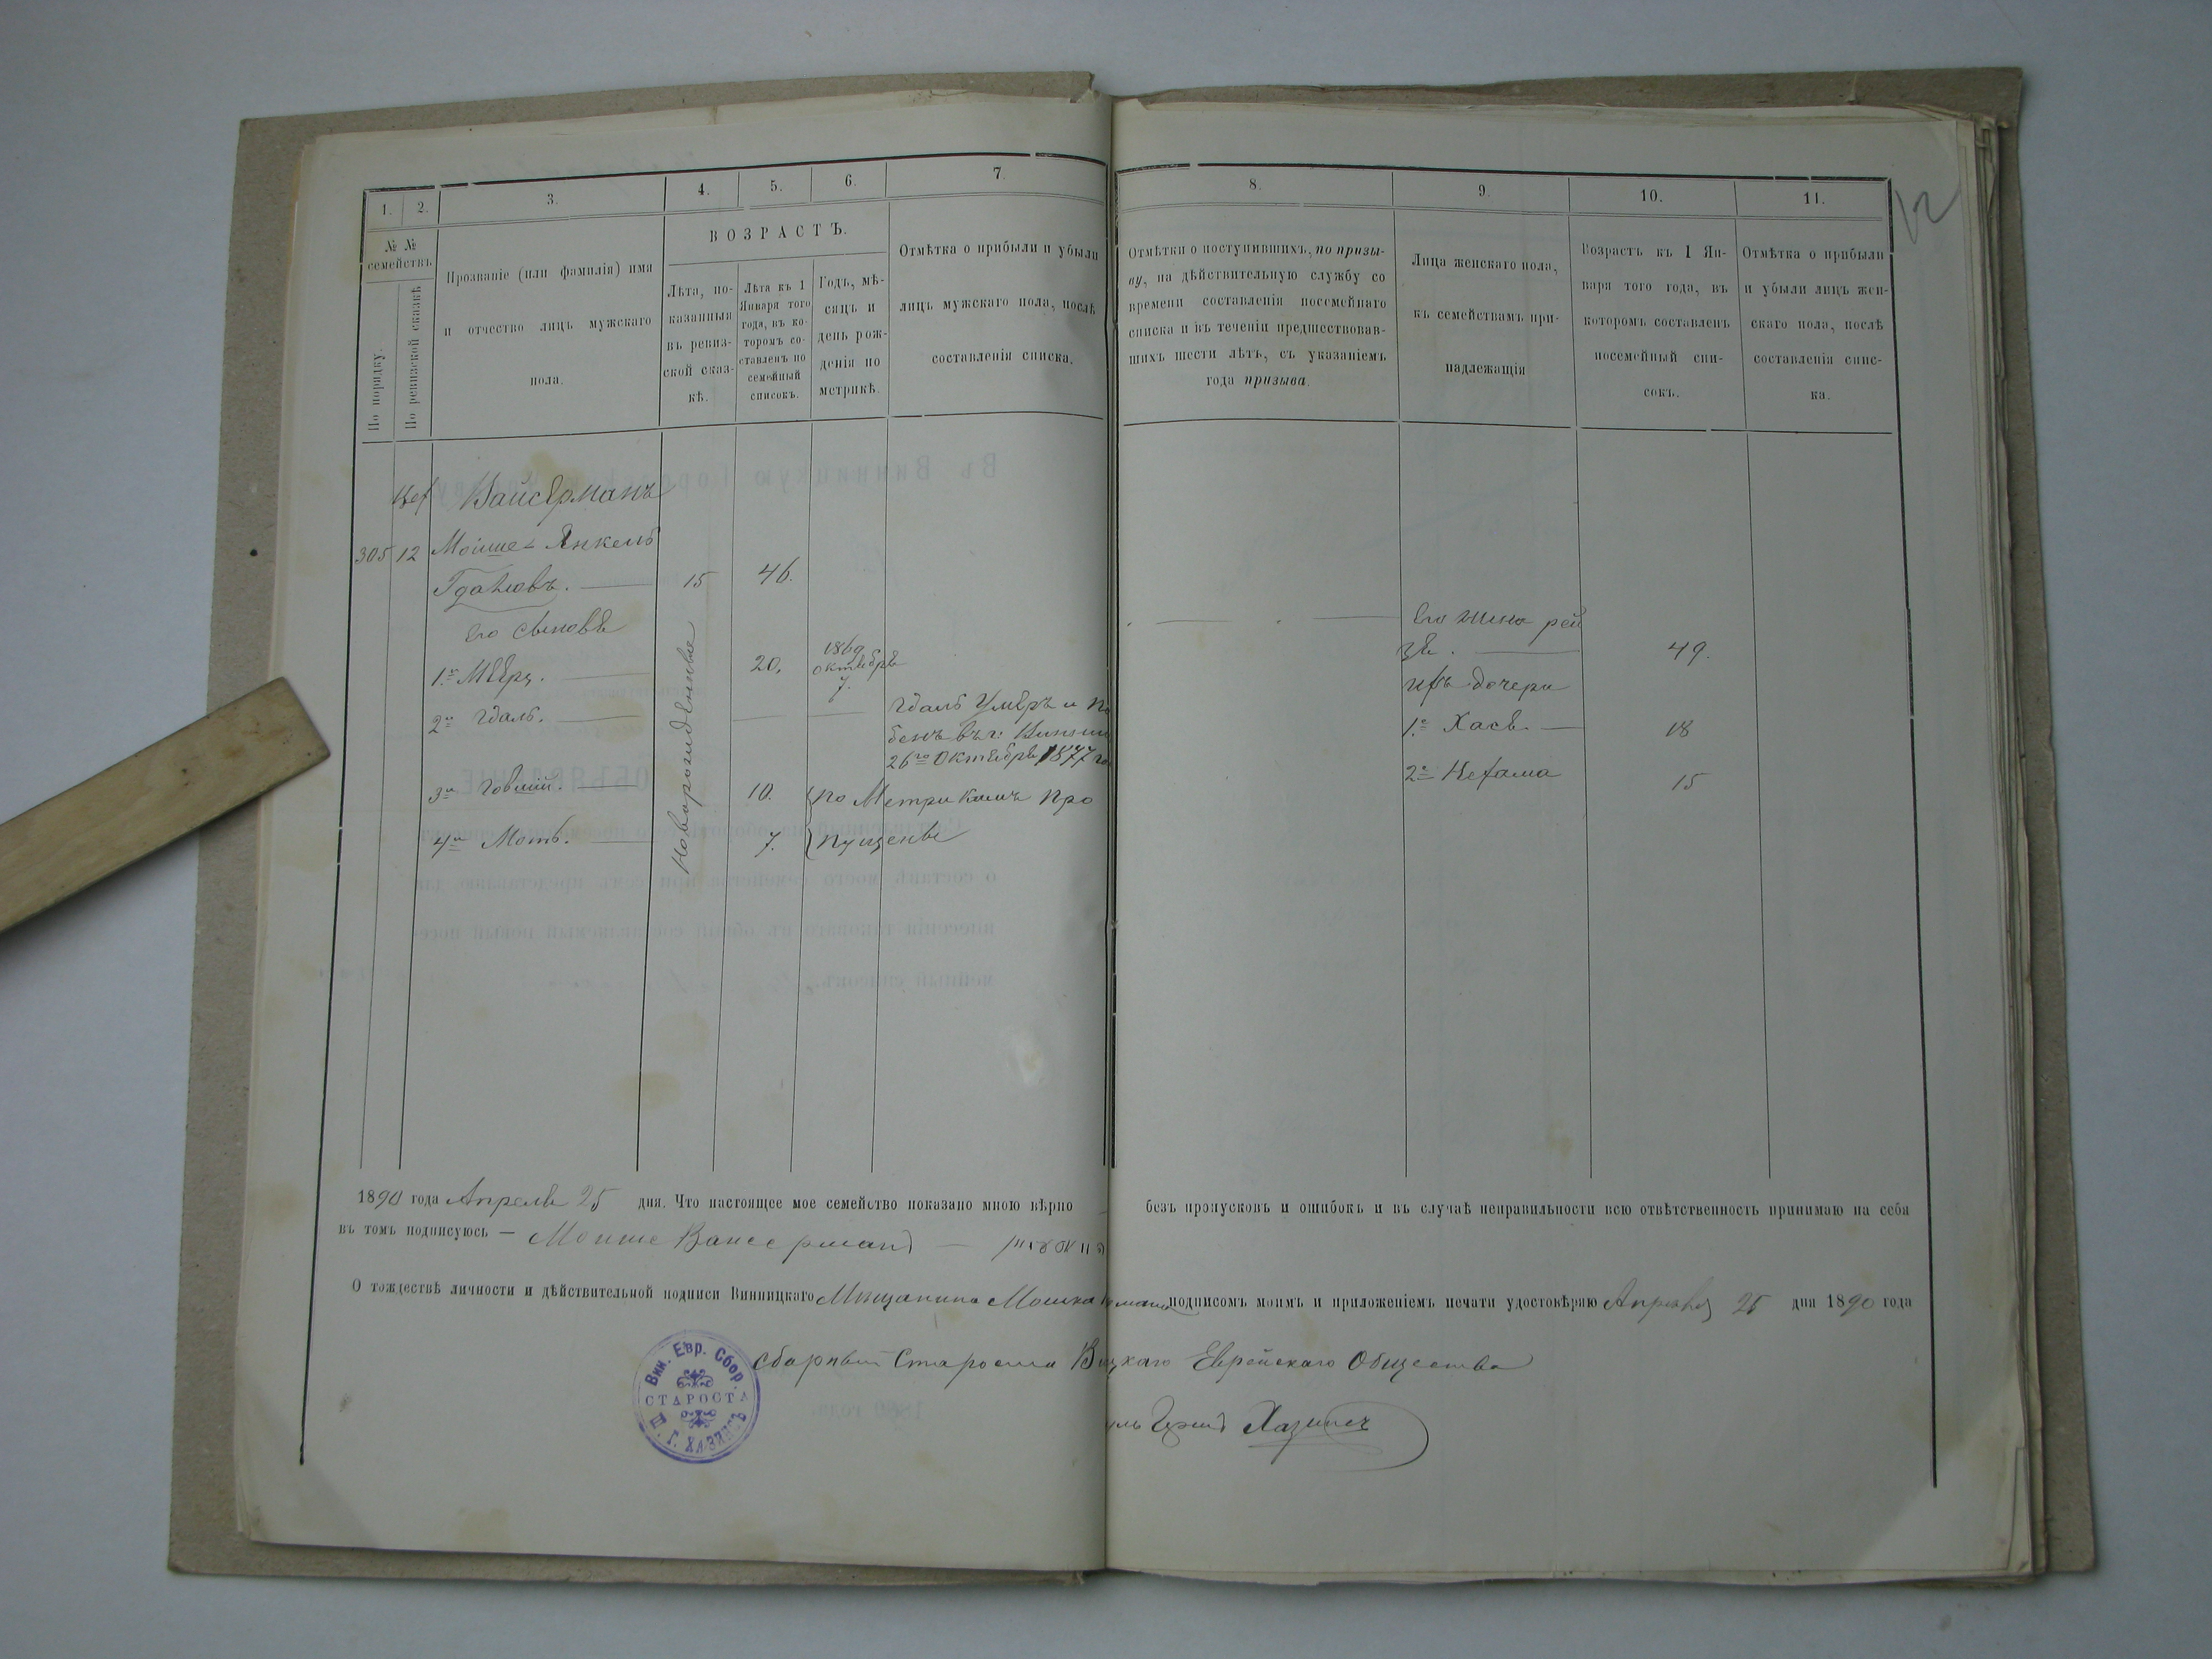 1.
2.
3.
4.
5.
6.
7.
8.
9.
10.
11.
12
№ №
семействъ
По порядку.
По ревизской сказкѣ
Прозваніе (или фамилія) имя
и отчество лицъ мужскаго
пола.
ВОЗРАСТЪ.
Лѣта, по-
казанныя
въ ревиз-
ской сказ-
кѣ.
Лѣта къ 1
Января того
года, въ ко-
торомъ со-
ставленъ по
семейный
списокъ.
Годъ, мѣ-
сяцъ и
день рож-
денія по
метрикѣ.
Отмѣтка о прибыли и убыли
лицъ мужскаго пола, послѣ
составленія списка.
Отмѣтки о поступившихъ, по призы-
ву, на дѣйствительную службу со
времени составленія посемейнаго
списка и въ теченіи предшествовав-
шихъ шести лѣтъ, съ указаніемъ
года призыва.
Лица женскаго пола,
къ семействамъ при-
надлежащія
Возрастъ къ 1 Ян-
варя того года, въ
которомъ составленъ
посемейный спи-
сокъ.
Отмѣтка о прибыли
и убыли лицъ жен-
скаго пола, послѣ
составленія спис-
ка.
Вайсерманъ
305 12 Мойше-Янкель
Гдалювъ. 15 46.
Его сыновья
Новорожденные
1.й Мѣеръ. 20. 1869 октября 7.
2й Гдаль. Гдаль Умеръ и по
26го Октября 1877 го
3й Говшій. 10. По Метрикамъ про
4й Моть. 7. пущены
Его жена рей
зя. 49.
ихъ дочери
1.я Хася. 18
2я Нехама 15
1890 года Апреля 25 дня. Что настоящее мое семейство показано мною вѣрно безъ пропусковъ и ошибокъ и въ случаѣ неправильности всю отвѣтственность принимаю на себя
въ томъ подписуюсь — Моише Вансерманъ
О тождествѣ личности и дѣйствительной подписи Винницкаго Мищанина Мошка подписомъ моимъ и приложеніемъ печати удостовѣряю Апреля 25 дня 1890 года
Сборный Староста В цкаго Еврейскаго Общества
Хазинъ
Вин. Евр. Сбор.
СТАРОСТА
Ш. Г. ХАЗИНЪ